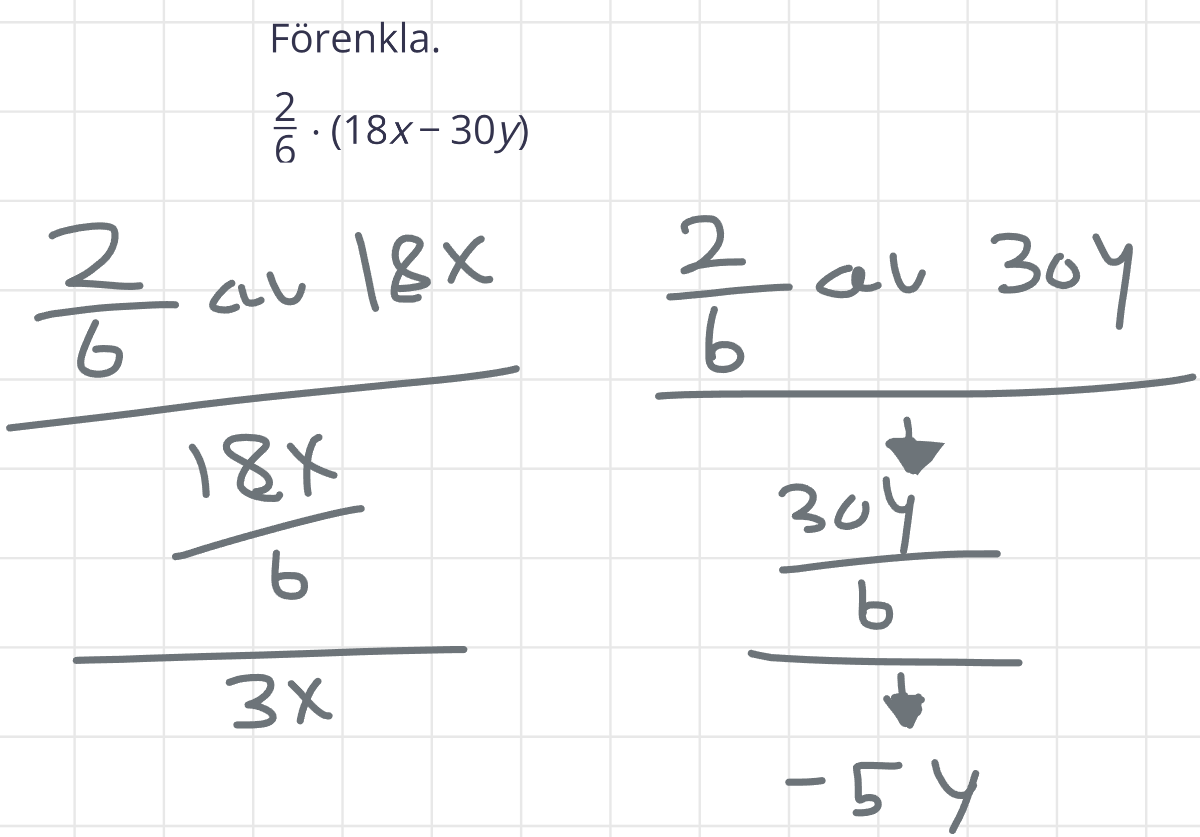 Förenkla.
2/6 · (18x – 30y)
2/6 av 18x
18x/6
3x
2/6 av 30y
30y/6
- 5y